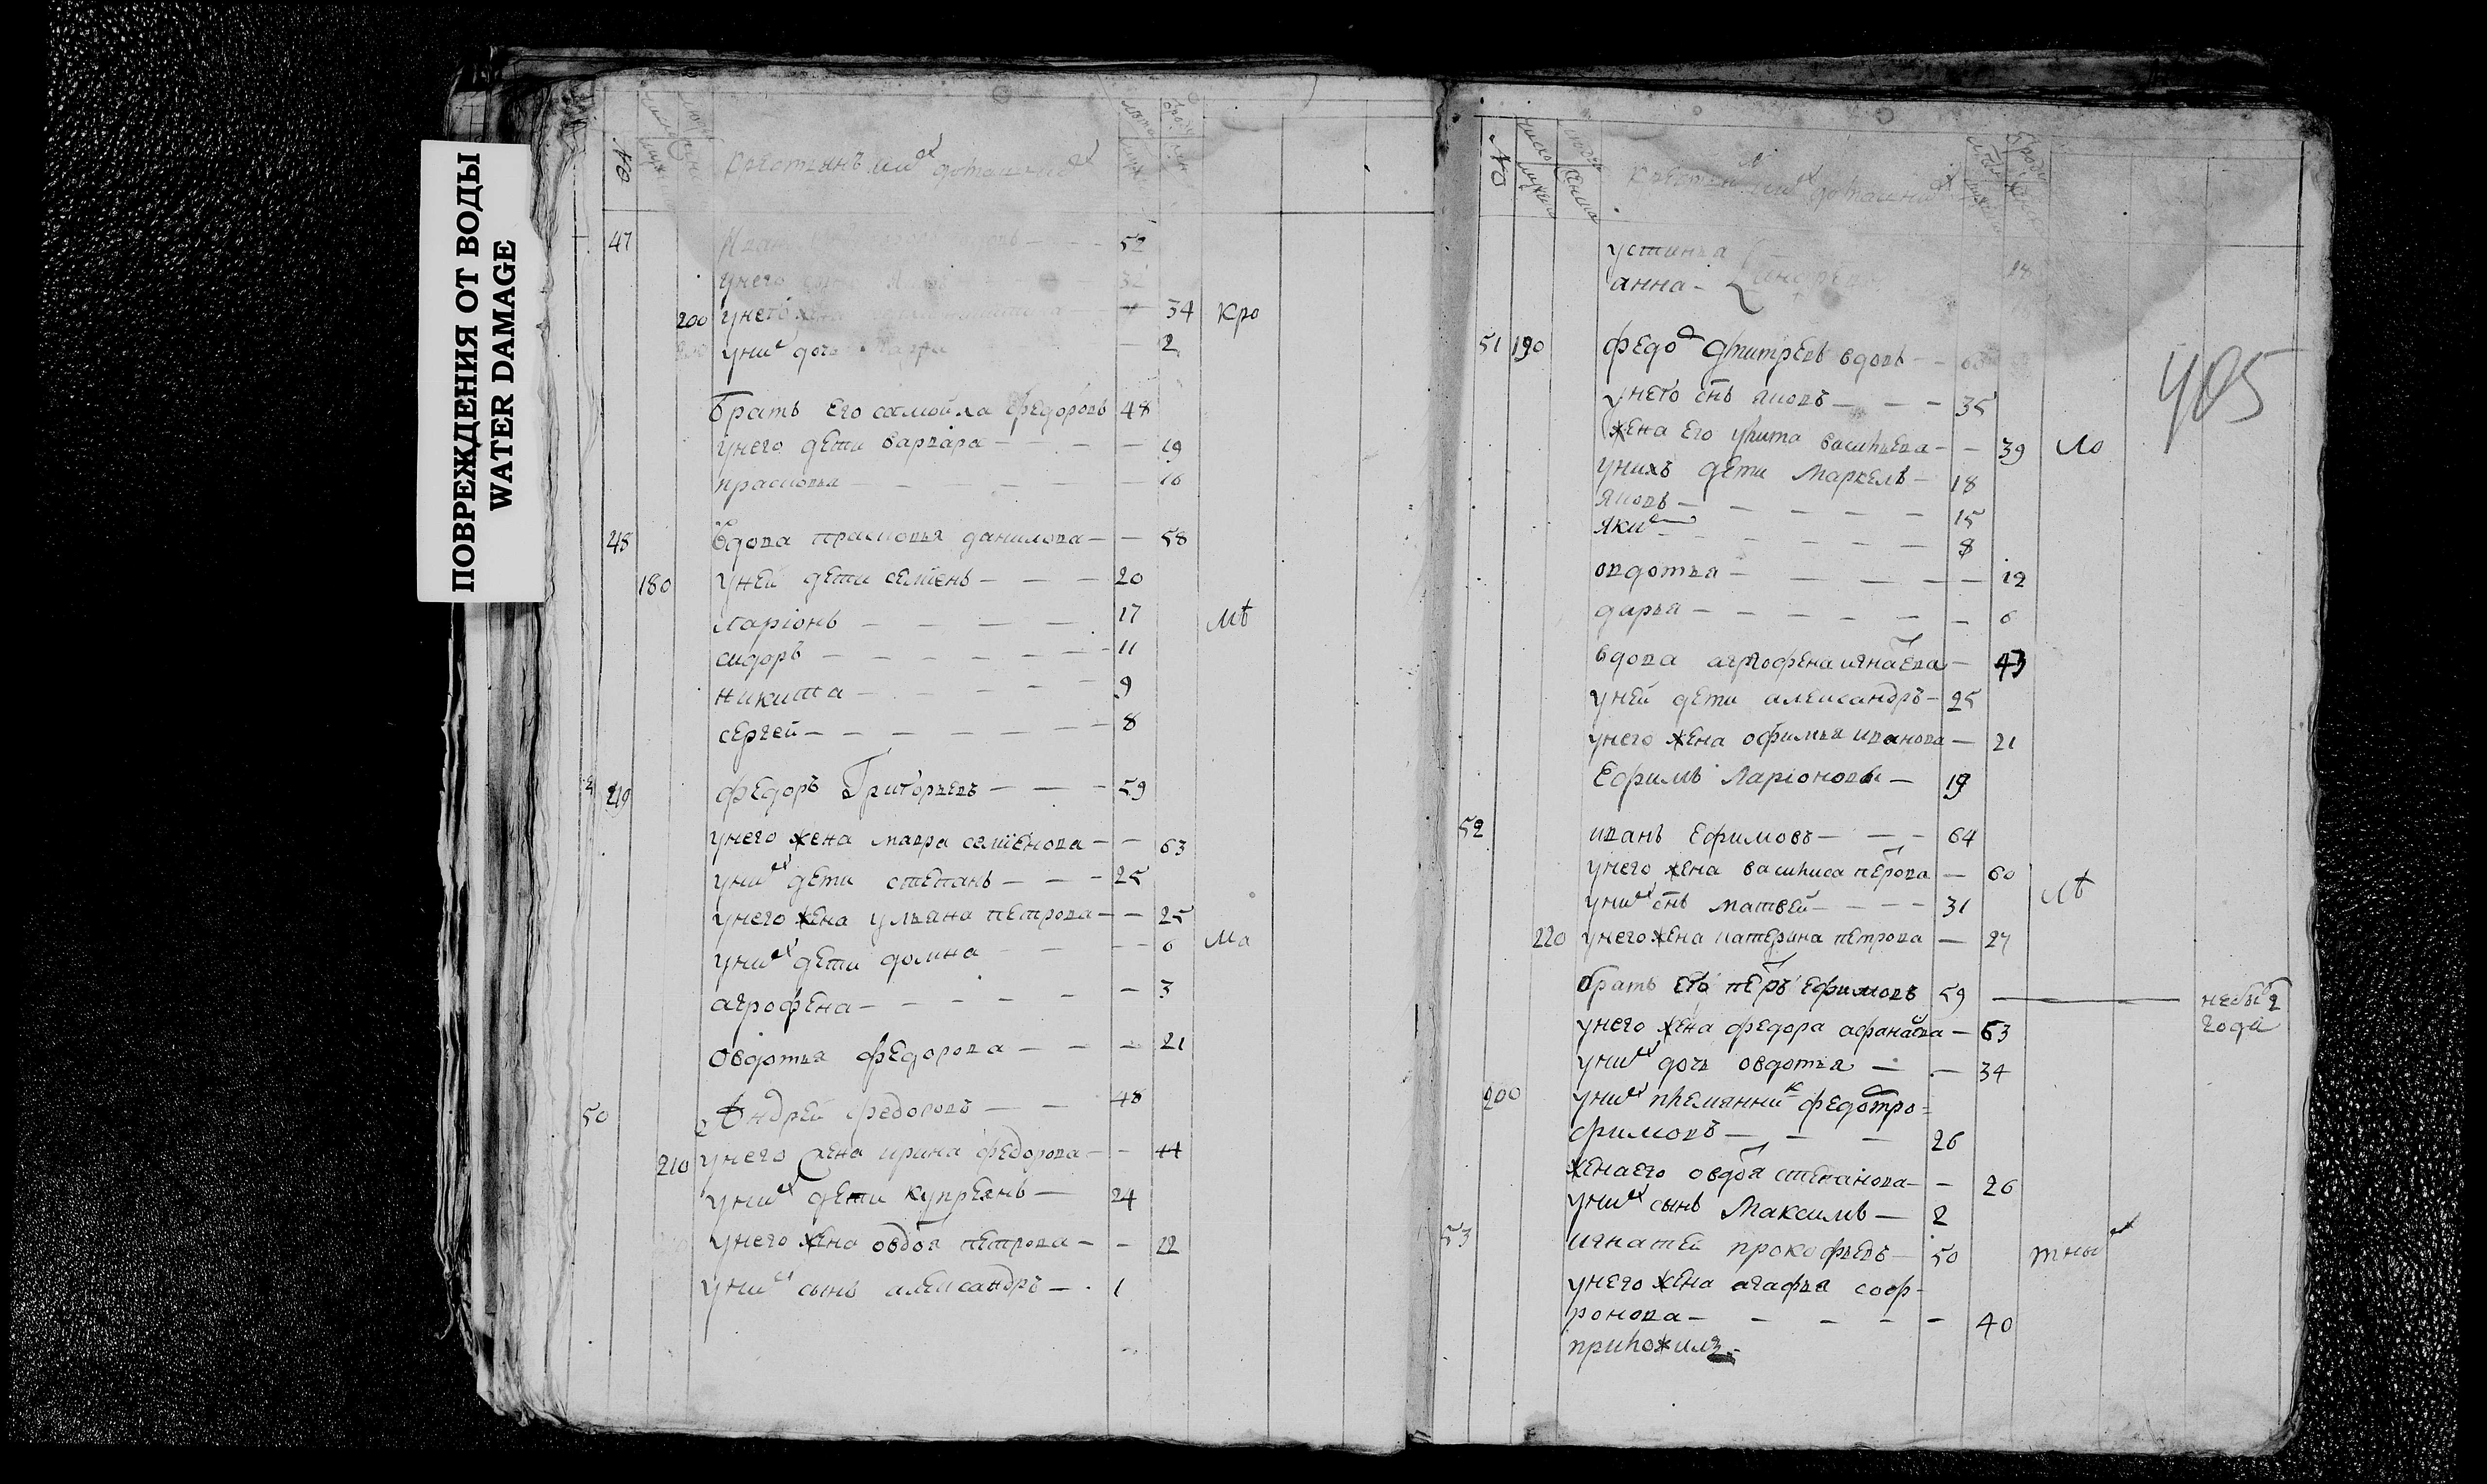 ПОВРЕЖДЕНИЯ ОТ ВОДЫ
WATER DAMAGE
№
47 52
унего
200 унего жена 34 кро
уних дочь 2
братъ его самойла федоровъ 48
унего дети варвара 19
прасковья 16
48 вдова прасковья данилова 58
180 уней дети семенъ 20
ларіонъ 17 мѣ
сидоръ 11
никита 9
сергей 8
49 федоръ Григорьевъ 59
унего жена мавра семенова 63
уних дети степанъ 25
унего жена ульяна петрова 25
уних дети домна 6 ма
агрофена 3
овдотья федорова 21
50 Андрей федоровъ 48
210 унего жена ирина федорова 44
уних дети купреянъ 24
унего жена овдоя петрова 22
уних сынъ александръ 1
№
устинья
анна
405
51 190 федо дмитревъ вдовъ
унего снъ яковъ 35
жена его улита василева 39 ло
унихъ дети маркелъ 18
яковъ 15
яки 8
овдотья 12
дарья 6
вдова агрофена игнаева 43
уней дети александръ 25
унего жена офимья иванова 21
Ефимъ ларіоновъ 19
52 иванъ Ефимовъ 64
унего жена василиса перова 60 мѣ
уних снъ матвей 31
220 унего жена катерина петрова 27
братъ его перъ ефимовъ 59 небы 2
года
унего жена федора афанасва 63
уних дочь овдотья 34
200 уних племянник федо тро=
фимовъ 26
жена его овдоя степанова 26
уних сынъ Максимъ 2
53 игнатей прокофьевъ 50 тны
унего жена агафья соф-
ронова 40
прихожиля